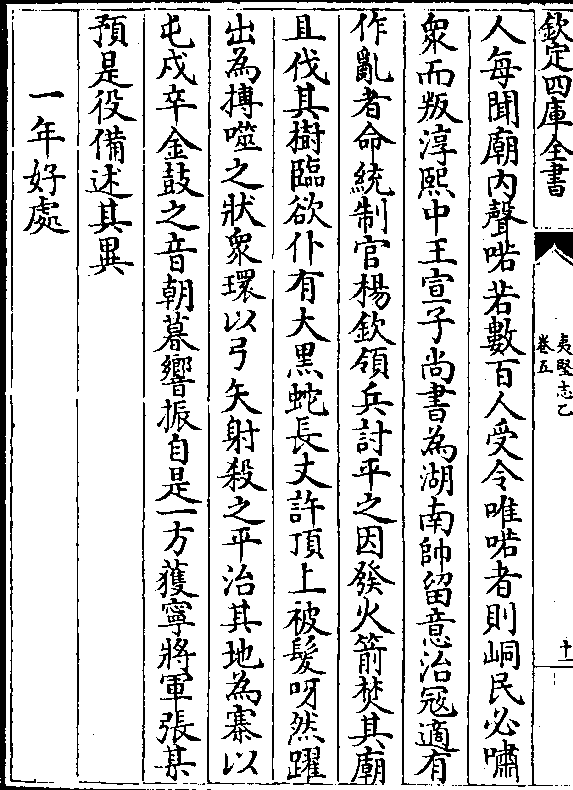 欽定四庫全書
夷堅志乙
卷五
十一
人每聞廟内聲喏若數百人受令唯喏者則峒民必嘯
衆而叛淳熙中王宣子尚書為湖南帥留意治冦適有
作亂者命統制官楊欽領兵討平之因發火箭焚其廟
且伐其樹臨欲仆有大黑蛇長丈許頂上被髮呀然躍
出為搏噬之狀衆環以弓矢射殺之平治其地為寨以
屯戍卒金鼓之音朝暮響振自是一方獲寧將軍張某
預是役備述其異
一年好處